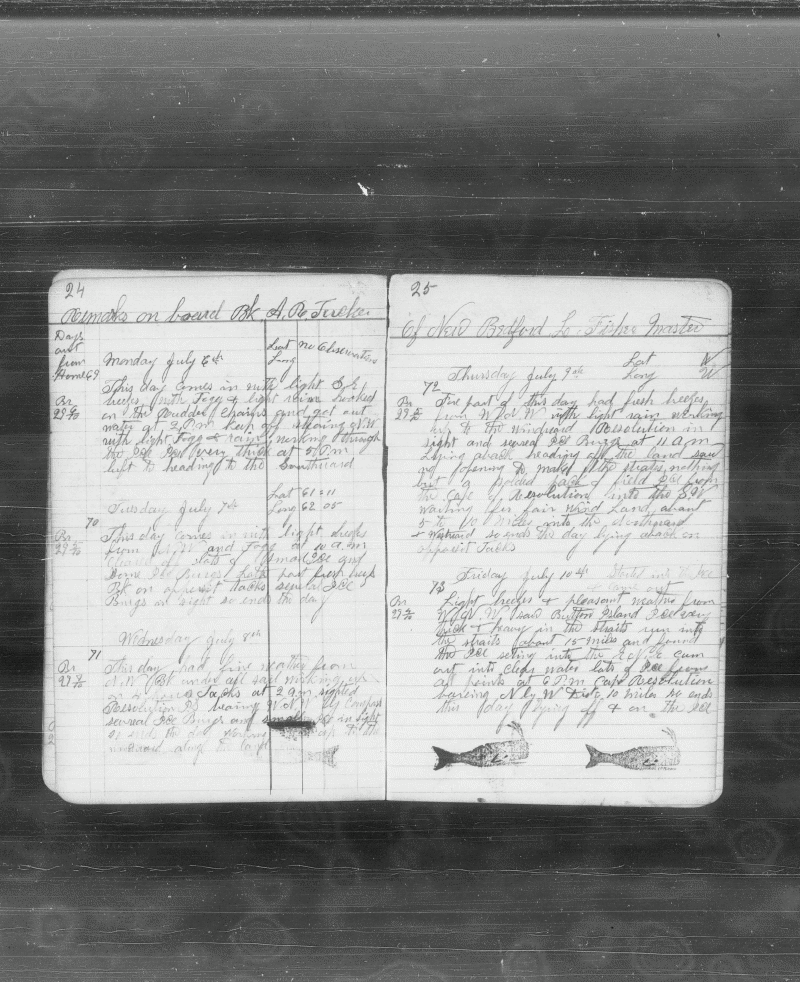 24
Remarks on board Bk A. R. Tucker
Days out from Home
69
Monday July 6th
Lat No Observations
Long
Br
This day comes in with light S.E.
breezes, with Fogg & light rain hooked
on the Rudder Chains and got out
water at 2 P.M. keep off stearing N.W
with light Fogg & rain working through
the Ice Ice very thick at 5 P.M.
left to heading to the Southward
Tuesday July 7th
Lat 61=11
Long 62 05
70
Br
This day comes in with light breezes
from and Fogg at 10 a.m
cleared of lots of small Ice and
Some Ice Burgs Later part fresh breeze
Bk on apposit tacks several Ice
Burgs in sight so ends the day
Wednesday July 8th
71
Br
This day had fine weather from
N.W Bk under all sail working up
on Tacks at 2 a.m sighted
Resolution Is bearing W.N.W by Compass
several Ice Burgs and small Ice in sight
so ends the day working to the
along the land
25
Of New Bedford L. Fisher Master
Thursday July 9th
Lat W
Long W
72
Br
Fore part of this day had fresh breezes
from W with light rain working
up to the windward Resolution in
sight and several Ice Burgs at 11 a.m
Laying aback heading off the land saw
no opening to make the straits nothing
but a solid pack of field Ice from
the Cape of Resolution into the S.W
waiting for fair wind Land about
5 to 10 miles into the
& Westward so ends the day lying aback on
apposit Tacks
73
Friday July 10th
Br
Light breezes & pleasant weather from
saw Button Island Ice very
thick & heavy in the straits run into
the straits about 15 miles and found
the Ice seting into the cum
out into clear water lots of Ice from
all points at 6 P.M. Cape Resolution
bearing N by W 10 miles so ends
this day lying off & on the Ice